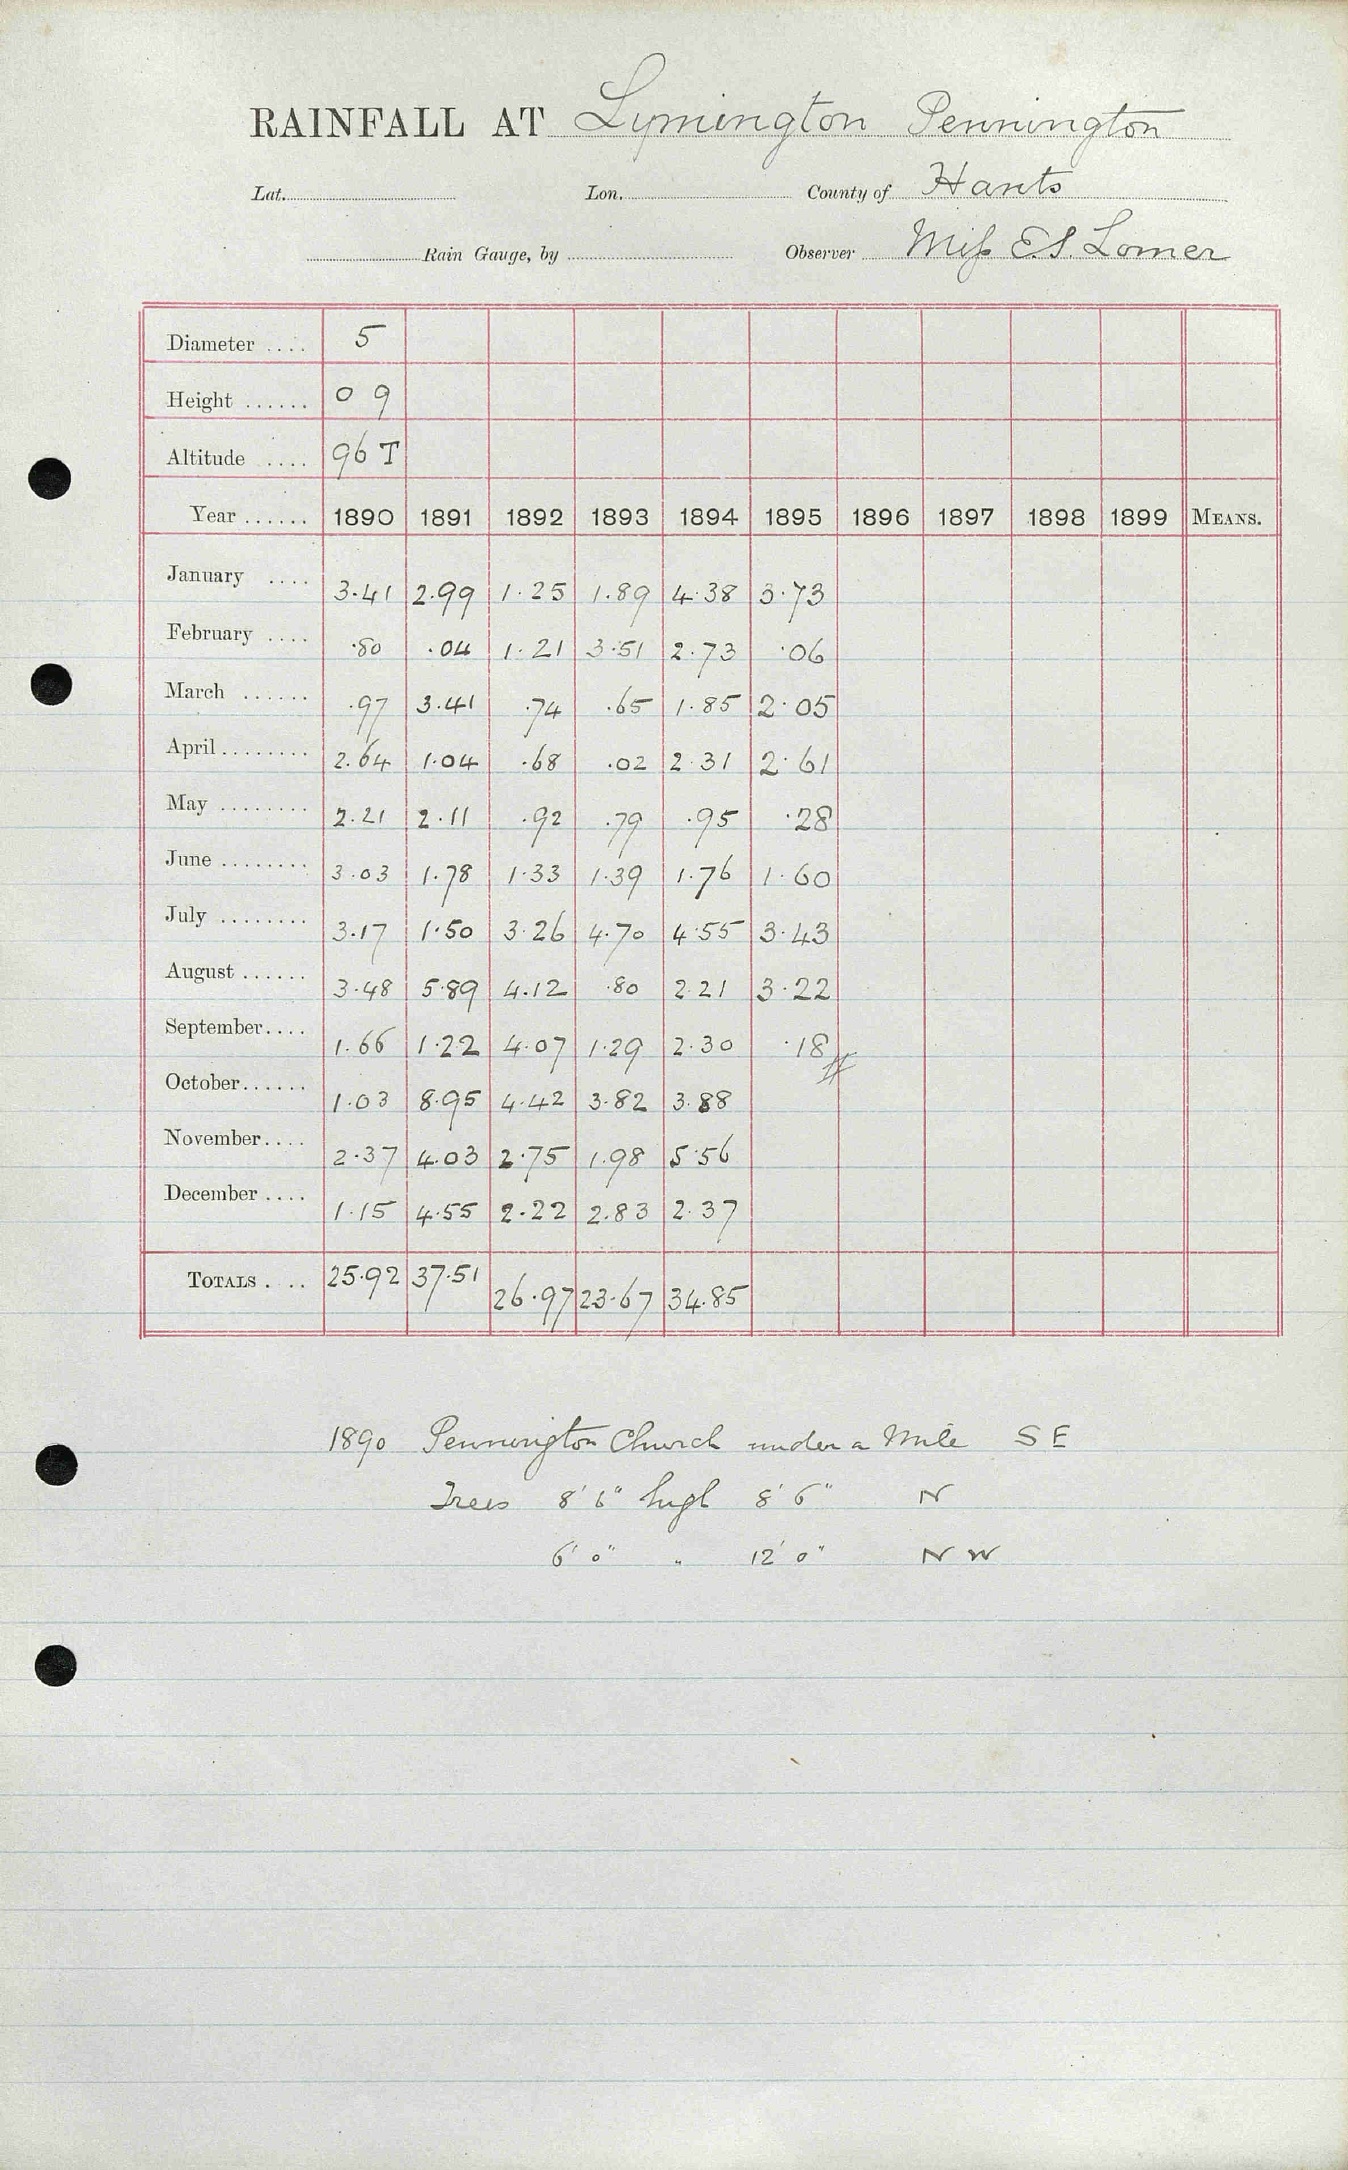 RAINFALL AT Lymington Pennington
Lat. Lon. County of Hants
Rain Gauge, by Observer Miſs E.S. Lomer
Diameter .... 5
Height ...... 0 9
Altitude .... 96 T
Year ...... 1890 1891 1892 1893 1894 1895 1896 1897 1898 1899 MEANS.
January .... 3.41 2.99 1.25 1.89 4.38 3.73
February .... .80 .04 1.21 3.51 2.73 .06
March ...... .97 3.41 .74 .65 1.85 2.05
April ........ 2.64 1.04 .68 .02 2.31 2.61
May ........ 2.21 2.11 .92 .79 .95 .28
June ........ 3.03 1.78 1.33 1.39 1.76 1.60
July ........ 3.17 1.50 3.26 4.70 4.55 3.43
August ...... 3.48 5.89 4.12 .80 2.21 3.22
September.... 1.66 1.22 4.07 1.29 2.30 .18
October...... 1.03 8.95 4.42 3.82 3.88
November.... 2.37 4.03 2.75 1.98 5.56
December .... 1.15 4.55 2.22 2.83 2.37
TOTALS . .. 25.92 37.51 26.97 23.67 34.85
1890 Pennington Church under a Mile S E
Trees 8' 6" high 8' 6" N
6' 0" " 12' 0" N W